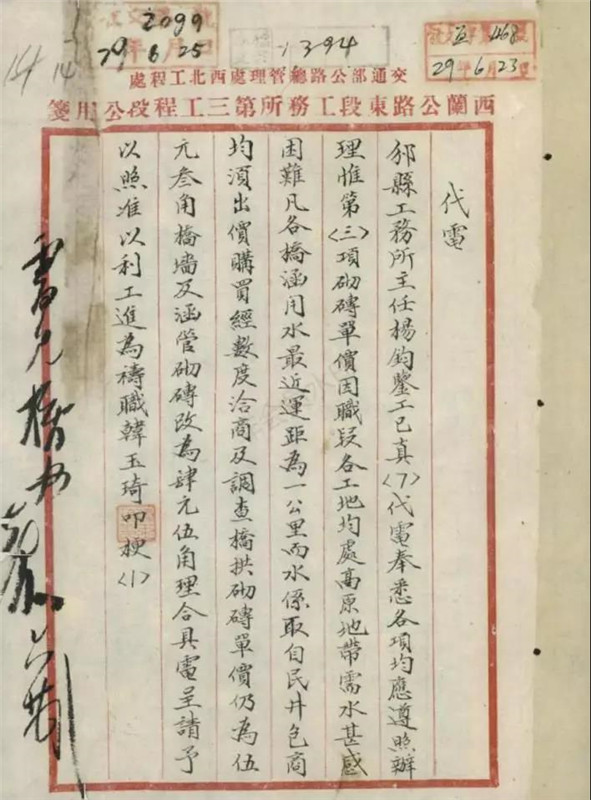 2099
29 6 25
1394
468
29年6月23日
14 14
交通部公路總管理處西北工程處
西蘭公路東段工務所第三工程段公用箋
代電
邠縣工務所主任楊鈞鑒工巳真〈7〉代電奉悉各項均應遵照辦
理惟第〈三〉項砌磚單價因職段各工地均處高原地帶需水甚感
困難凡各橋涵用水最近運距為一公里而水係取自民井包商
均須出價購買經數度洽商及調查橋拱砌磚單價仍為伍
元叁角橋墻及涵管砌磚改為肆元伍角理合具電呈請予
以照准以利工進為禱職韓玉琦叩梗〈1〉